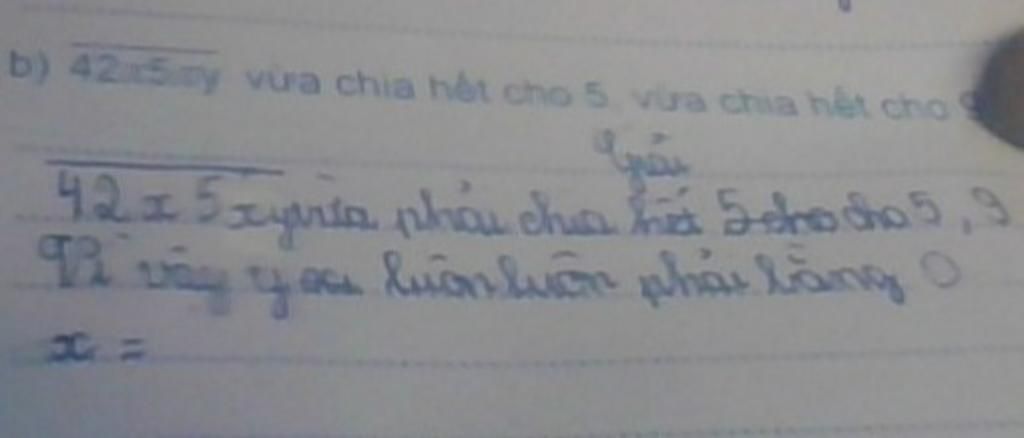 b) 42x5xy vừa chia hết cho 5, vừa chia hết cho 9
Giải
42x5xy vừa phải chia hết cho 5, 9
Vì vậy y luôn luôn phải bằng 0
x =